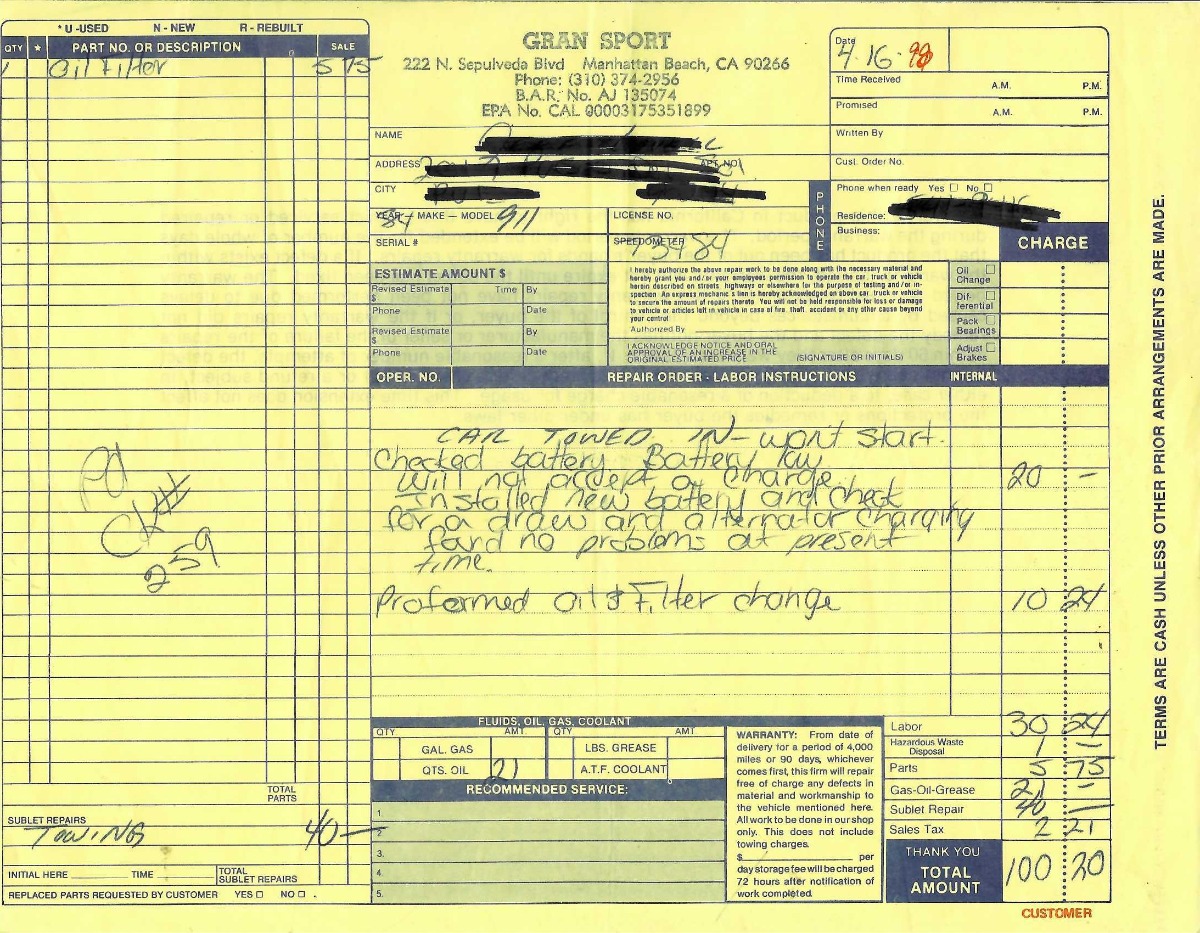 * U - USED N - NEW R - REBUILT
QTY * PART NO. OR DESCRIPTION SALE
1 Oil Filter 5 75
GRAN SPORT
222 N. Sepulveda Blvd Manhattan Beach, CA 90266
Phone: (310) 374-2956
B.A.R. No. AJ 135074
EPA No. CAL 00003175351899
Date
4-16-98
Time Received A.M. P.M.
Promised A.M. P.M.
Written By
Cust. Order No.
NAME
ADDRESS APT. NO.
CITY
PHONE
Phone when ready Yes No
Residence:
Business:
YEAR — MAKE — MODEL
84 911
LICENSE NO.
SERIAL #
SPEEDOMETER
73484
CHARGE
ESTIMATE AMOUNT $
Revised Estimate Time By
$
Phone Date
Revised Estimate By
$
Phone Date
I hereby authorize the above repair work to be done along with the necessary material and
hereby grant you and/or your employees permission to operate the car, truck or vehicle
herein described on streets, highways or elsewhere for the purpose of testing and/or in-
spection. An express mechanic's lien is hereby acknowledged on above car, truck or vehicle
to secure the amount of repairs thereto. You will not be held responsible for loss or damage
to vehicle or articles left in vehicle in case of fire, theft, accident or any other cause beyond
your control.
Authorized By
I ACKNOWLEDGE NOTICE AND ORAL
APPROVAL OF AN INCREASE IN THE
ORIGINAL ESTIMATED PRICE
(SIGNATURE OR INITIALS)
Oil
Change
Dif-
ferential
Pack
Bearings
Adjust
Brakes
OPER. NO. REPAIR ORDER - LABOR INSTRUCTIONS INTERNAL
CAR TOWED IN - won't start.
Checked battery. Battery low
will not accept a charge. 20 -
Installed new battery and check
for a draw and alternator charging
found no problems at present
time.
Proformed oil & Filter change 10 24
Pd
CK#
259
TOTAL
PARTS
SUBLET REPAIRS
TOWING 40 —
INITIAL HERE TIME TOTAL
SUBLET REPAIRS
REPLACED PARTS REQUESTED BY CUSTOMER YES NO
FLUIDS, OIL, GAS, COOLANT
QTY AMT. QTY AMT.
GAL. GAS LBS. GREASE
QTS. OIL 21 A.T.F. COOLANT
RECOMMENDED SERVICE:
1.
2.
3.
4.
5.
WARRANTY: From date of
delivery for a period of 4,000
miles or 90 days, whichever
comes first, this firm will repair
free of charge any defects in
material and workmanship to
the vehicle mentioned here.
All work to be done in our shop
only. This does not include
towing charges.
$ per
day storage fee will be charged
72 hours after notification of
work completed.
Labor 30 24
Hazardous Waste
Disposal 1 —
Parts 5 75
Gas-Oil-Grease 21 -
Sublet Repair 40 —
Sales Tax 2 21
THANK YOU
TOTAL
AMOUNT 100 20
CUSTOMER
TERMS ARE CASH UNLESS OTHER PRIOR ARRANGEMENTS ARE MADE.